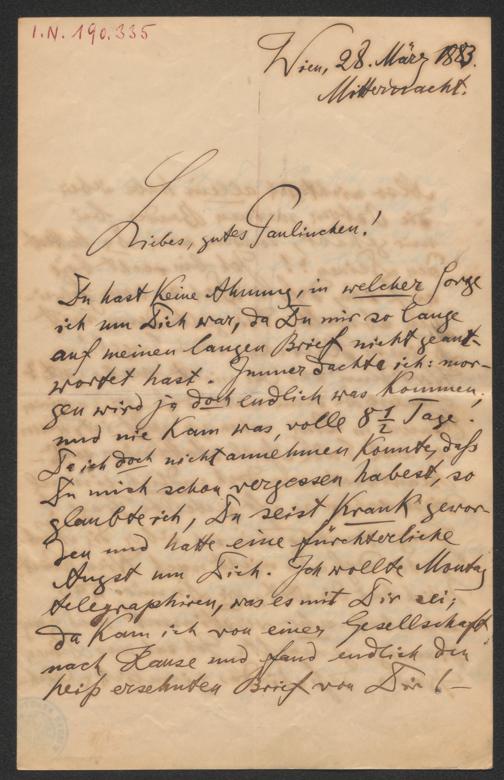 I.N. 190.335
Wien, 28. März 1883.
Mitternacht.
Liebes, gutes Paulinchen!
Du hast keine Ahnung, in welcher Sorge
ich um Dich war, da Du mir so lange
auf meinen langen Brief nicht geant-
wortet hast. Immer dachte ich: mor-
gen wird ja doch endlich was kommen,
und nie kam was, volle 8 1/2 Tage.
Da ich doch nicht annehmen konnte, daß
Du mich schon vergessen habest, so
glaubte ich, Du seist krank gewor-
den und hatte eine fürchterliche
Angst um Dich. Ich wollte Montag
telegraphiren, was es mit Dir sei;
da kam ich von einer Gesellschaft
nach Hause und fand endlich den
heiß ersehnten Brief von Dir! –